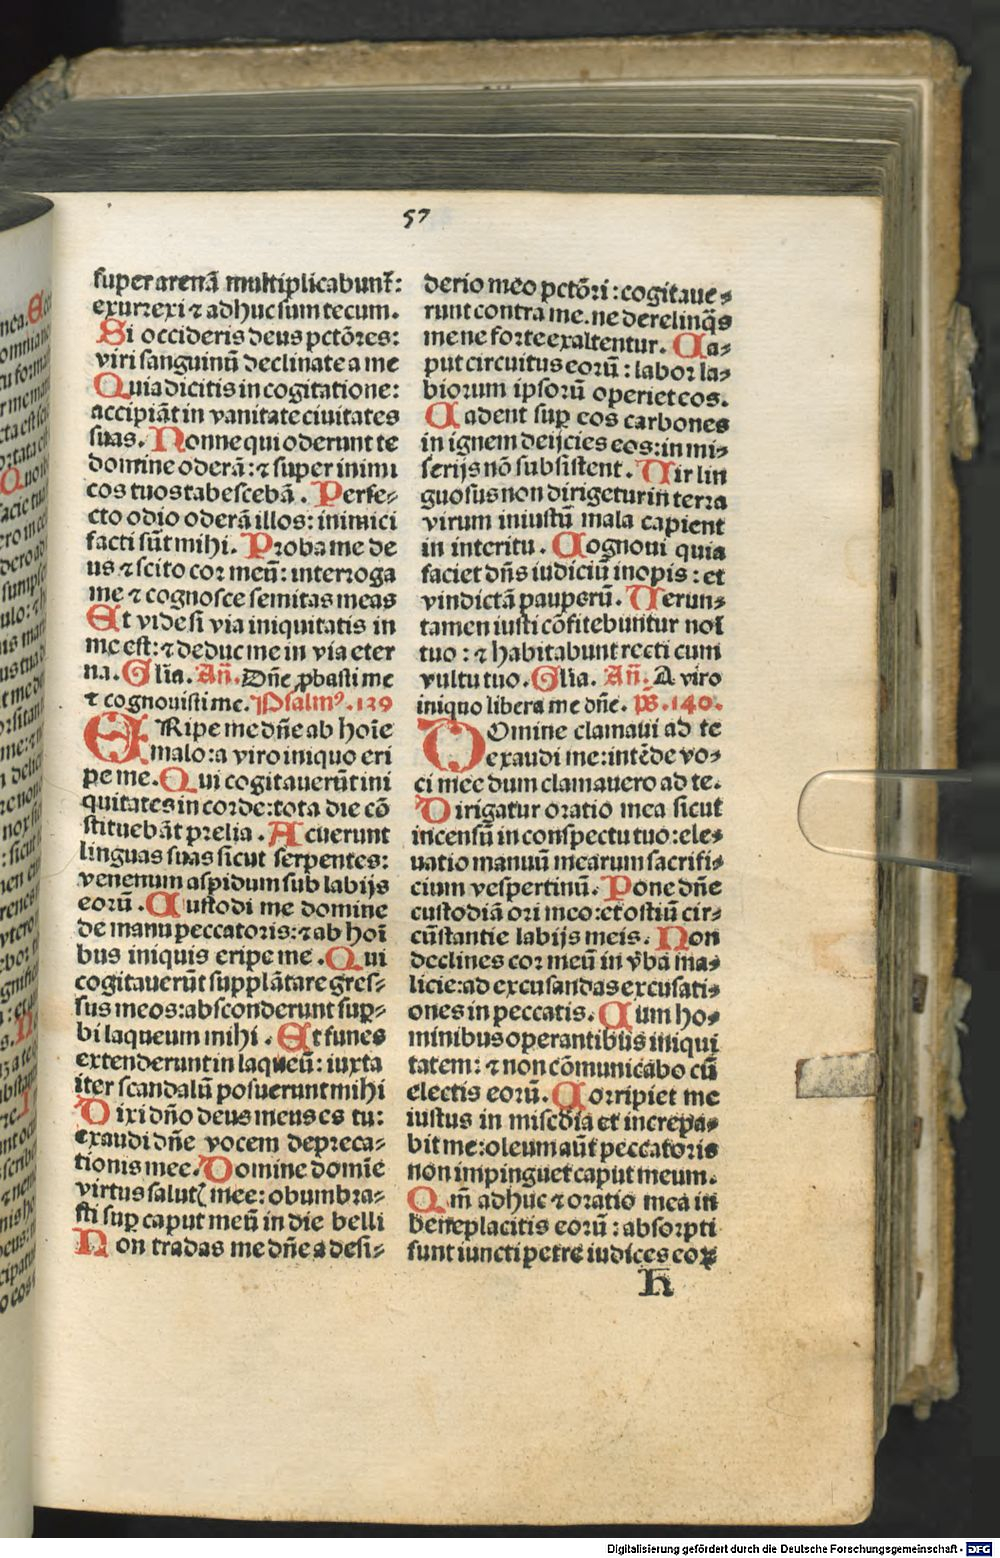 57
super arenā multiplicabunť:
exurrexi ⁊ adhuc sum tecum.
Si occideris deus pctōres:
viri sanguinū declinate a me
Quia dicitis in cogitatione:
accipiāt in vanitate ciuitates
suas. Nonne qui oderunt te
domine oderā: ⁊ super inimi
cos tuos tabescebā. Perfe⸗
cto odio oderā illos: inimici
facti sūt mihi. Proba me de
us ⁊ scito cor meū: interroga
me ⁊ cognosce semitas meas
Et vide si via iniquitatis in
me est: ⁊ deduc me in via eter
na. Glīa. Añ. Dñe ꝓbasti me
⁊ cognouisti me. Psalmꝰ. 139
ERipe me dñe ab hoīe
malo: a viro iniquo eri
pe me. Qui cogitauerūt ini
quitates in corde: tota die cō
stituebāt prelia. Acuerunt
linguas suas sicut serpentes:
venenum aspidum sub labijs
eorū. Custodi me domine
de manu peccatoris: ⁊ ab hoī
bus iniquis eripe me. Qui
cogitauerūt supplātare gres⸗
sus meos: absconderunt suꝑ⸗
bi laqueum mihi. Et funes
extenderunt in laqueū: iuxta
iter scandalū posuerunt mihi
Dixi dño deus meus es tu:
exaudi dñe vocem depreca⸗
tionis mee. Domine domīe
virtus salutꝭ mee: obumbra⸗
sti suꝑ caput meū in die belli
Non tradas me dñe a desi⸗
derio meo pctōri: cogitaue⸗
runt contra me. ne derelinq̄s
me ne forte exaltentur. Ca⸗
put circuitus eorū: labor la⸗
biorum ipsorū operiet eos.
Cadent suꝑ eos carbones
in ignem deijcies eos: in mi⸗
serijs nō subsistent. Vir lin
guosus non dirigetur in terra
virum iniustū mala capient
in interitu. Cognoui quia
faciet dñs iudiciū inopis: et
vindictā pauperū. Verun⸗
tamen iusti cōfitebuntur noī
tuo: ⁊ habitabunt recti cum
vultu tuo. Glīa. Añ. A viro
iniquo libera me dñe. ps̄. 140.
DOmine clamaui ad te
exaudi me: intēde vo⸗
ci mee dum clamauero ad te.
Dirigatur oratio mea sicut
incensū in conspectu tuo: ele⸗
uatio manuū mearum sacrifi⸗
cium vespertinū. Pone dñe
custodiā ori meo: et ostiū cir⸗
cūstantie labijs meis. Non
declines cor meū in v̄ba ma⸗
licie: ad excusandas excusati⸗
ones in peccatis. Cum ho⸗
minibus operantibus iniqui
tatem: ⁊ non cōmunicabo cū
electis eorū. Corripiet me
iustus in misc̄dia et increpa⸗
bit me: oleum aūt peccatoris
non impinguet caput meum.
Qm̄ adhuc ⁊ oratio mea in
beneplacitis eorū: absorpti
sunt iuncti petre iudices eoꝝ
H
Digitalisierung gefördert durch die Deutsche Forschungsgemeinschaft - DFG